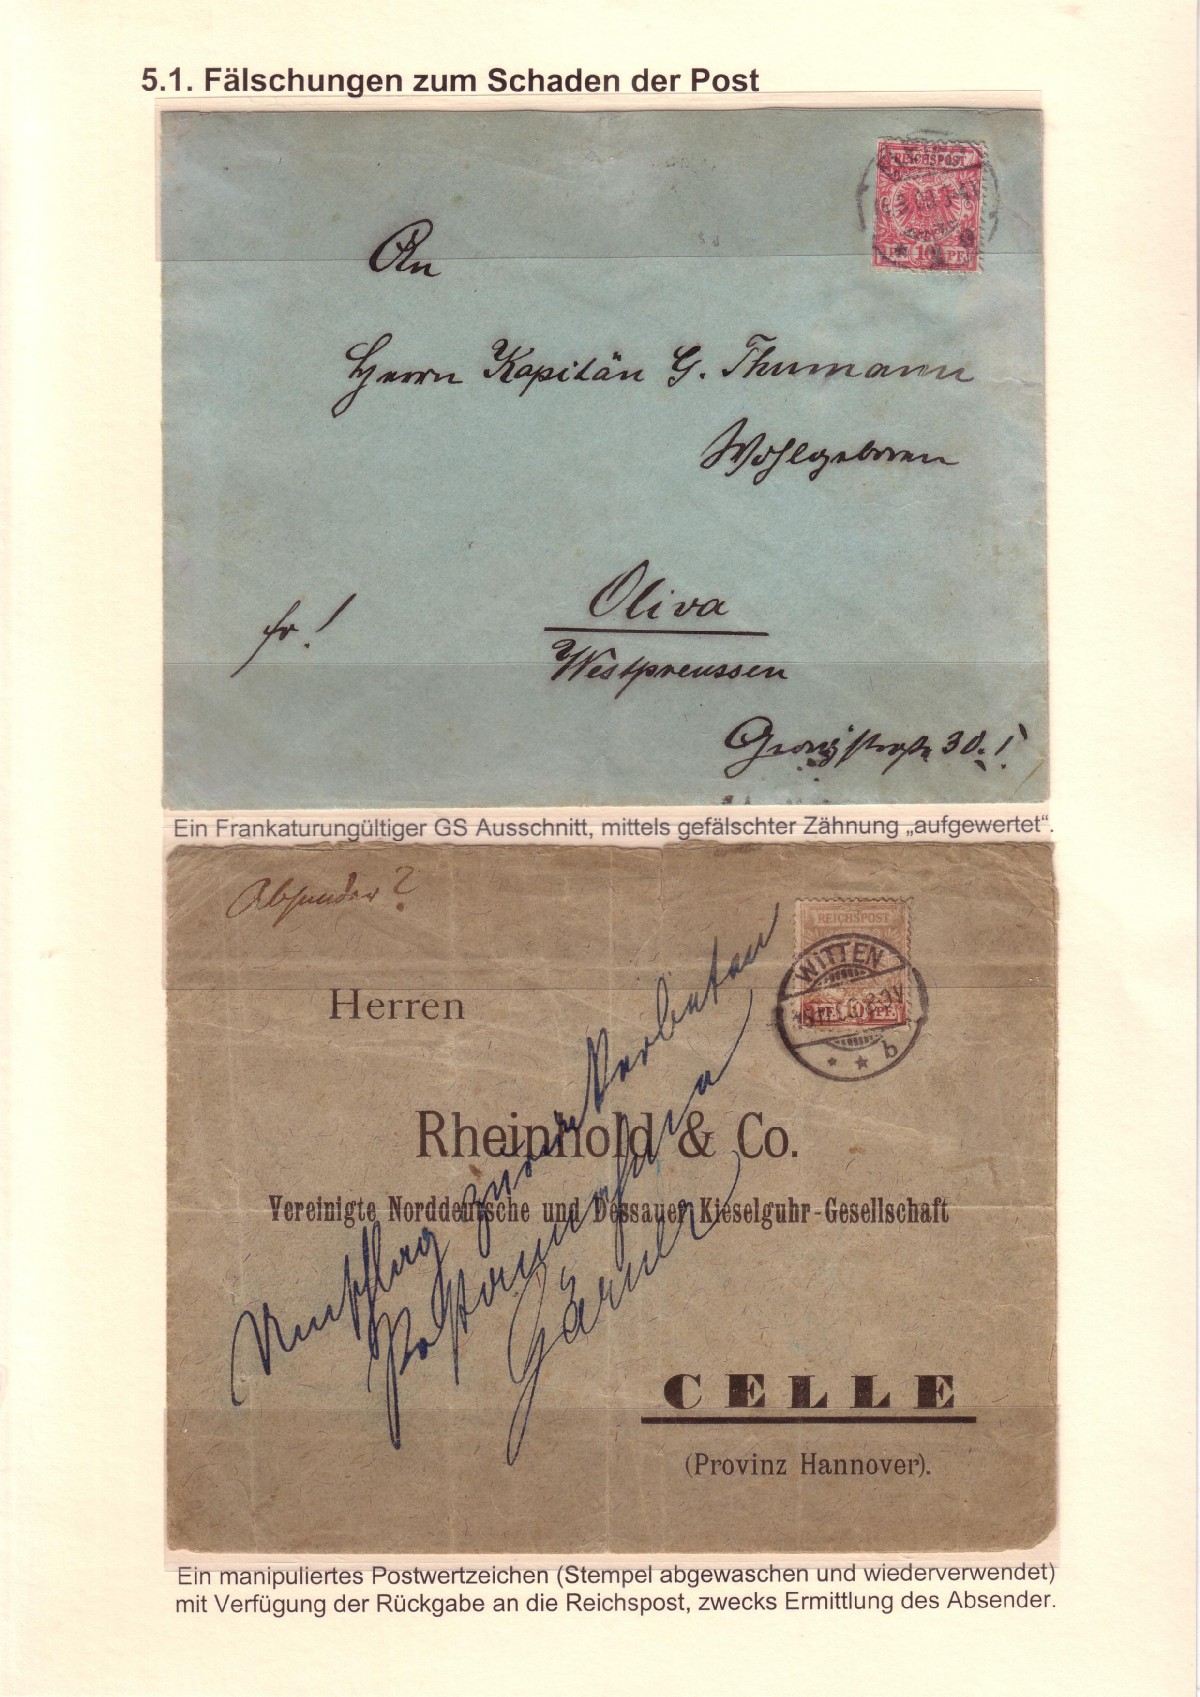 5.1. Fälschungen zum Schaden der Post
REICHSPOST
10 PF
An
Herrn Kapitän G. Thumann
Wohlgeboren
Oliva
fr!
Westpreussen
Georgstraße 30.!
Ein Frankaturungültiger GS Ausschnitt, mittels gefälschter Zähnung „aufgewertet“.
Absender?
REICHSPOST
WITTEN
PF. 10 PF.
* * b
Herren
Rheinhold & Co.
Vereinigte Norddeutsche und Dessauer Kieselguhr-Gesellschaft
Umschlag zurück erbeten
CELLE
(Provinz Hannover).
Ein manipuliertes Postwertzeichen (Stempel abgewaschen und wiederverwendet)
mit Verfügung der Rückgabe an die Reichspost, zwecks Ermittlung des Absender.